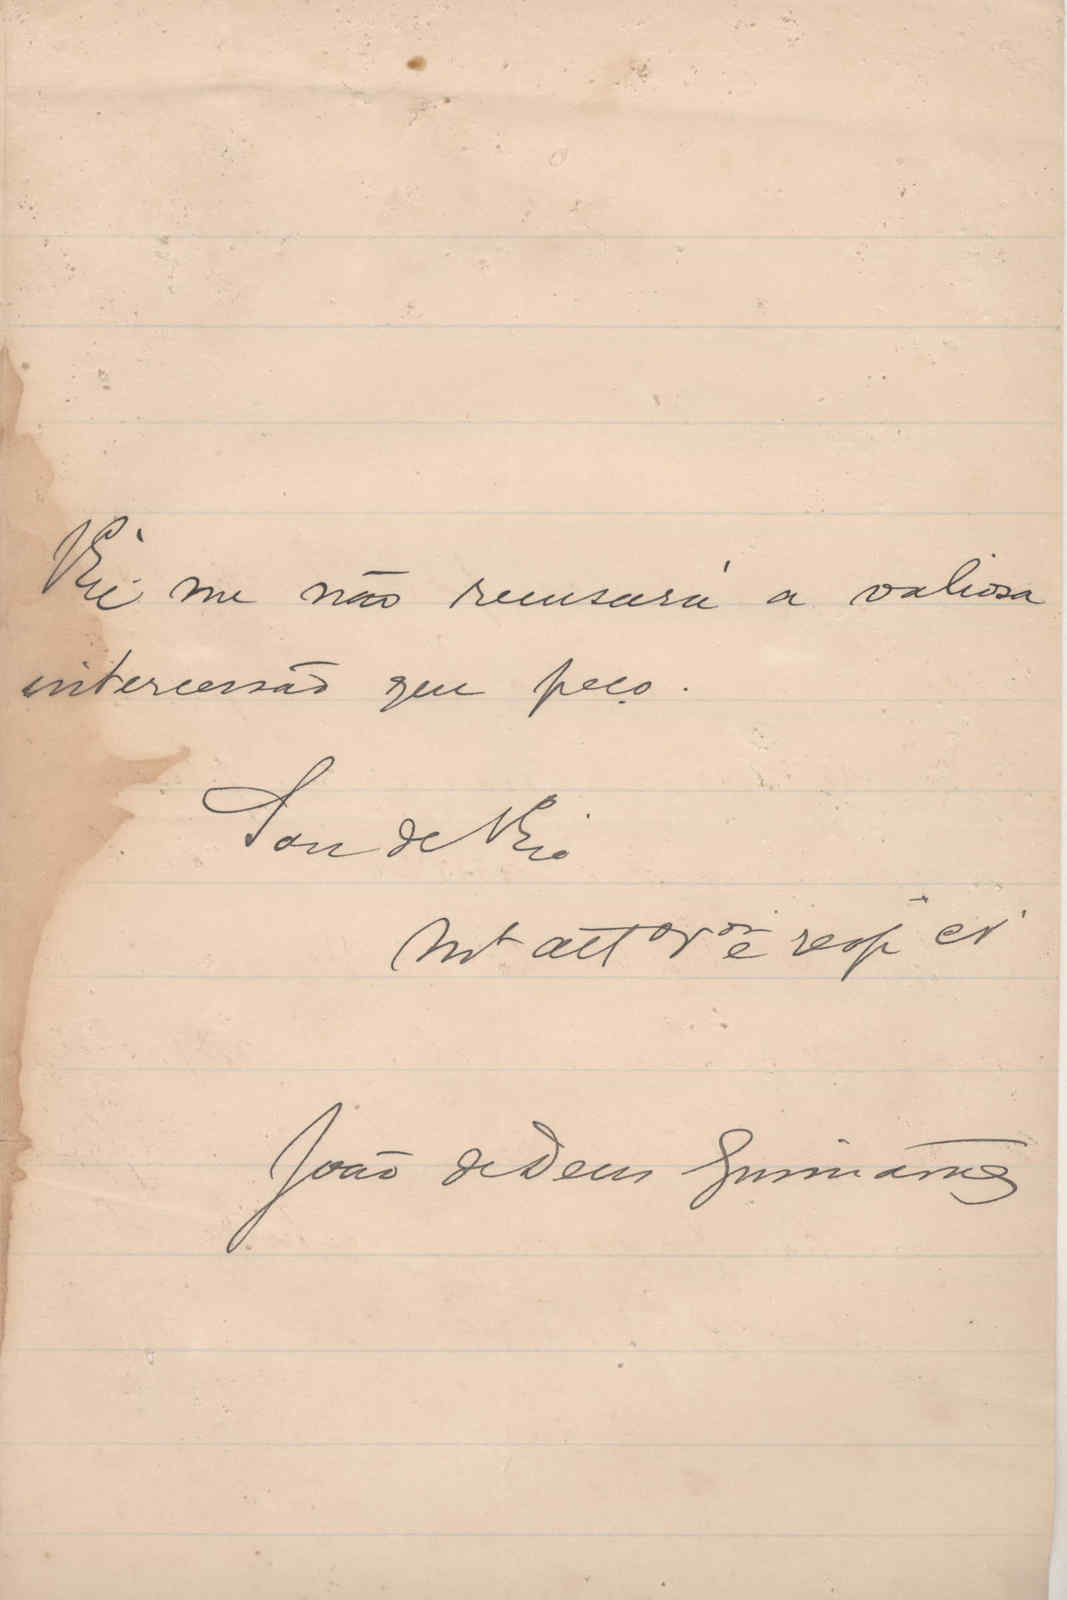 V.Ex.ª me não recusará a valiosa
intercessão que peço.
Sou de V.Ex.ª
mt att.º v.ºr e resp. cr.º
João de Deus Guimarães